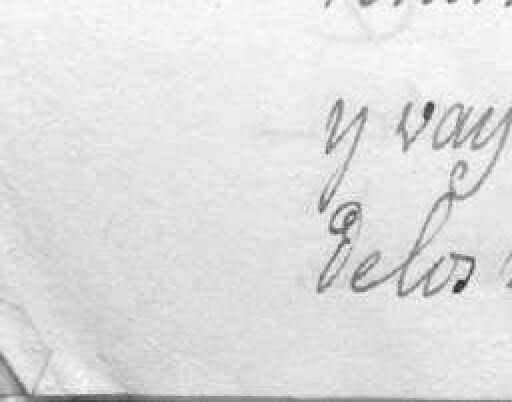 y vay
Delos